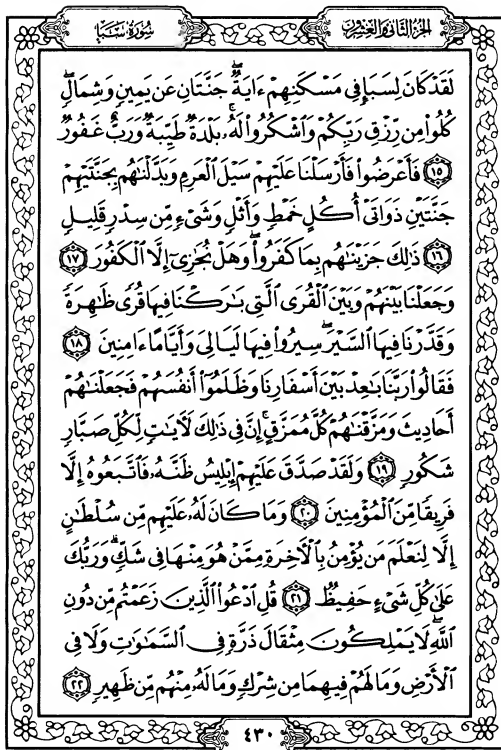 سُورَةُ سَبَإٍ
الجزء الثاني والعشرون
لَقَدْ كَانَ لِسَبَإٍ فِي مَسْكَنِهِمْ ءَايَةٌ ۖ جَنَّتَانِ عَن يَمِينٍ وَشِمَالٍ ۖ
كُلُوا۟ مِن رِّزْقِ رَبِّكُمْ وَٱشْكُرُوا۟ لَهُۥ ۚ بَلْدَةٌ طَيِّبَةٌ وَرَبٌّ غَفُورٌ
﴿١٥﴾ فَأَعْرَضُوا۟ فَأَرْسَلْنَا عَلَيْهِمْ سَيْلَ ٱلْعَرِمِ وَبَدَّلْنَٰهُم بِجَنَّتَيْهِمْ
جَنَّتَيْنِ ذَوَاتَىْ أُكُلٍ خَمْطٍ وَأَثْلٍ وَشَىْءٍ مِّن سِدْرٍ قَلِيلٍ
﴿١٦﴾ ذَٰلِكَ جَزَيْنَٰهُم بِمَا كَفَرُوا۟ ۖ وَهَلْ نُجَٰزِىٓ إِلَّا ٱلْكَفُورَ ﴿١٧﴾
وَجَعَلْنَا بَيْنَهُمْ وَبَيْنَ ٱلْقُرَى ٱلَّتِى بَٰرَكْنَا فِيهَا قُرًى ظَٰهِرَةً
وَقَدَّرْنَا فِيهَا ٱلسَّيْرَ ۖ سِيرُوا۟ فِيهَا لَيَالِىَ وَأَيَّامًا ءَامِنِينَ ﴿١٨﴾
فَقَالُوا۟ رَبَّنَا بَٰعِدْ بَيْنَ أَسْفَارِنَا وَظَلَمُوٓا۟ أَنفُسَهُمْ فَجَعَلْنَٰهُمْ
أَحَادِيثَ وَمَزَّقْنَٰهُمْ كُلَّ مُمَزَّقٍ ۚ إِنَّ فِى ذَٰلِكَ لَءَايَٰتٍ لِّكُلِّ صَبَّارٍ
شَكُورٍ ﴿١٩﴾ وَلَقَدْ صَدَّقَ عَلَيْهِمْ إِبْلِيسُ ظَنَّهُۥ فَٱتَّبَعُوهُ إِلَّا
فَرِيقًا مِّنَ ٱلْمُؤْمِنِينَ ﴿٢٠﴾ وَمَا كَانَ لَهُۥ عَلَيْهِم مِّن سُلْطَٰنٍ
إِلَّا لِنَعْلَمَ مَن يُؤْمِنُ بِٱلْءَاخِرَةِ مِمَّنْ هُوَ مِنْهَا فِى شَكٍّ ۗ وَرَبُّكَ
عَلَىٰ كُلِّ شَىْءٍ حَفِيظٌ ﴿٢١﴾ قُلِ ٱدْعُوا۟ ٱلَّذِينَ زَعَمْتُم مِّن دُونِ
ٱللَّهِ ۖ لَا يَمْلِكُونَ مِثْقَالَ ذَرَّةٍ فِى ٱلسَّمَٰوَٰتِ وَلَا فِى
ٱلْأَرْضِ وَمَا لَهُمْ فِيهِمَا مِن شِرْكٍ وَمَا لَهُۥ مِنْهُم مِّن ظَهِيرٍ ﴿٢٢﴾
٤٣٠